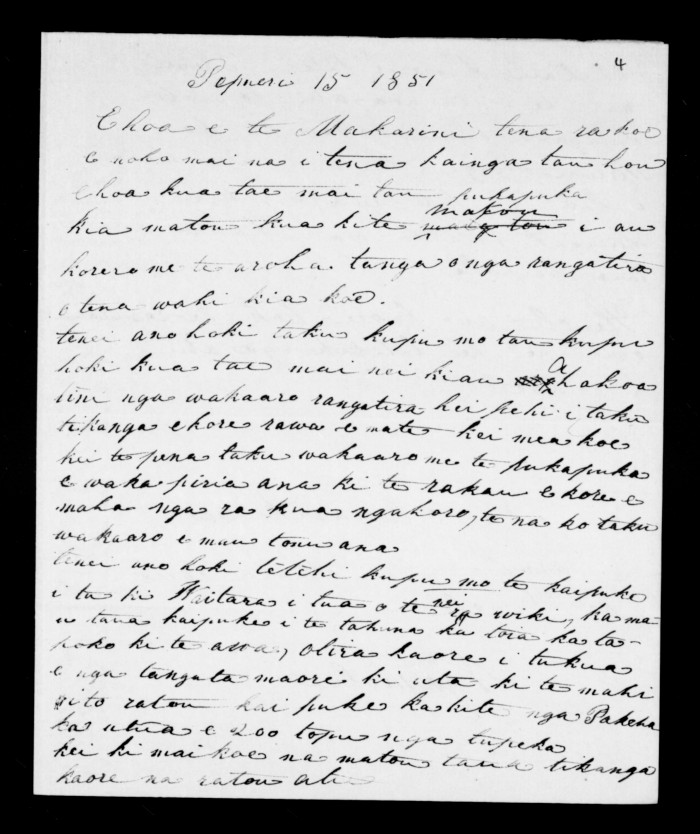 4
Pepueri 15 1851
Ehoa e te Makarini tena ra koe
e noho mai na i tena kainga tau hou
ehoa kua tae mai tau pukapuka
kia matou kua kite matou i au
korero me te aroha. tanga o nga rangatira
o tena wahi kia koe.
tenei ano hoki taku kupu mo tau kupu
hoki kua tae mai nei kiau Ahakoa
tini nga wakaaro rangatira hei pehi i taku
tikanga ekore rawa e mate kei mea koe
kei te pena taku wakaaro me te pukapuka
e waka piria ana ki te rakau ekore e
maha nga ra kua ngahoro, tena ko taku
wakaaro e mau tonu ana
tenei ano hoki tetehi kupu mo te kaipuke
i tu ki Waitara i tua o te nei ra wiki, ka ma-
u taua kaipuke i te tahuna ka toia ka ta-
poko ki te awa, otira kaore i tukua
e nga tangata maori ki uta ki te mahi
i to ratou kai puke ka kite nga Pakeha
ka utua e 200 topu nga tupeka
kei ki mai koe na matou taua tikanga
kaore na ratou ake